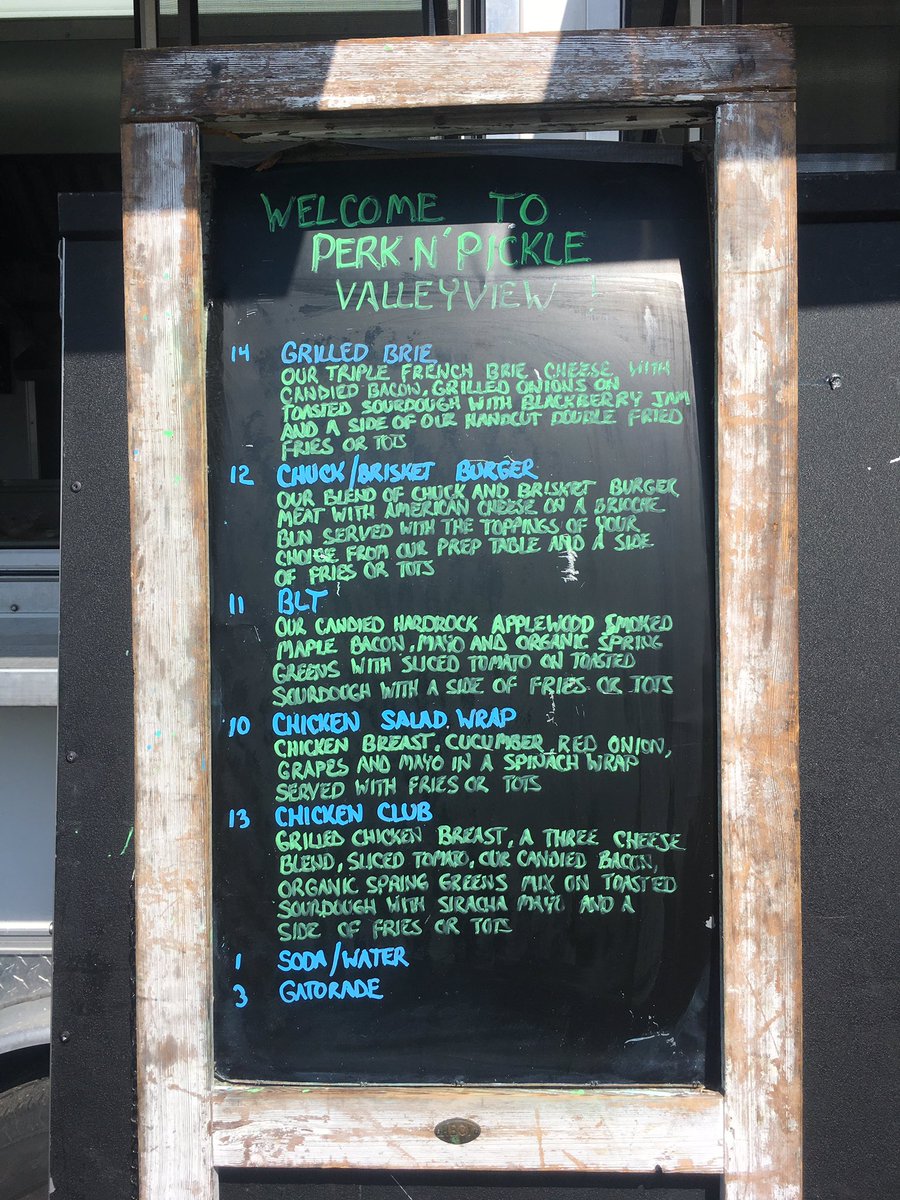 WELCOME TO
PERK N' PICKLE
VALLEYVIEW !
14 GRILLED BRIE
OUR TRIPLE FRENCH BRIE CHEESE WITH
CANDIED BACON, GRILLED ONIONS ON
TOASTED SOURDOUGH WITH BLACKBERRY JAM
AND A SIDE OF OUR HANDCUT DOUBLE FRIED
FRIES OR TOTS
12 CHUCK/BRISKET BURGER
OUR BLEND OF CHUCK AND BRISKET BURGER
MEAT WITH AMERICAN CHEESE ON A BRIOCHE
BUN SERVED WITH THE TOPPINGS OF YOUR
CHOICE FROM OUR PREP TABLE AND A SIDE
OF FRIES OR TOTS
11 BLT
OUR CANDIED HARDROCK APPLEWOOD SMOKED
MAPLE BACON, MAYO AND ORGANIC SPRING
GREENS WITH SLICED TOMATO ON TOASTED
SOURDOUGH WITH A SIDE OF FRIES OR TOTS
10 CHICKEN SALAD WRAP
CHICKEN BREAST, CUCUMBER, RED ONION,
GRAPES AND MAYO IN A SPINACH WRAP
SERVED WITH FRIES OR TOTS
13 CHICKEN CLUB
GRILLED CHICKEN BREAST, A THREE CHEESE
BLEND, SLICED TOMATO, OUR CANDIED BACON,
ORGANIC SPRING GREENS MIX ON TOASTED
SOURDOUGH WITH SIRACHA MAYO AND A
SIDE OF FRIES OR TOTS
1 SODA/WATER
3 GATORADE